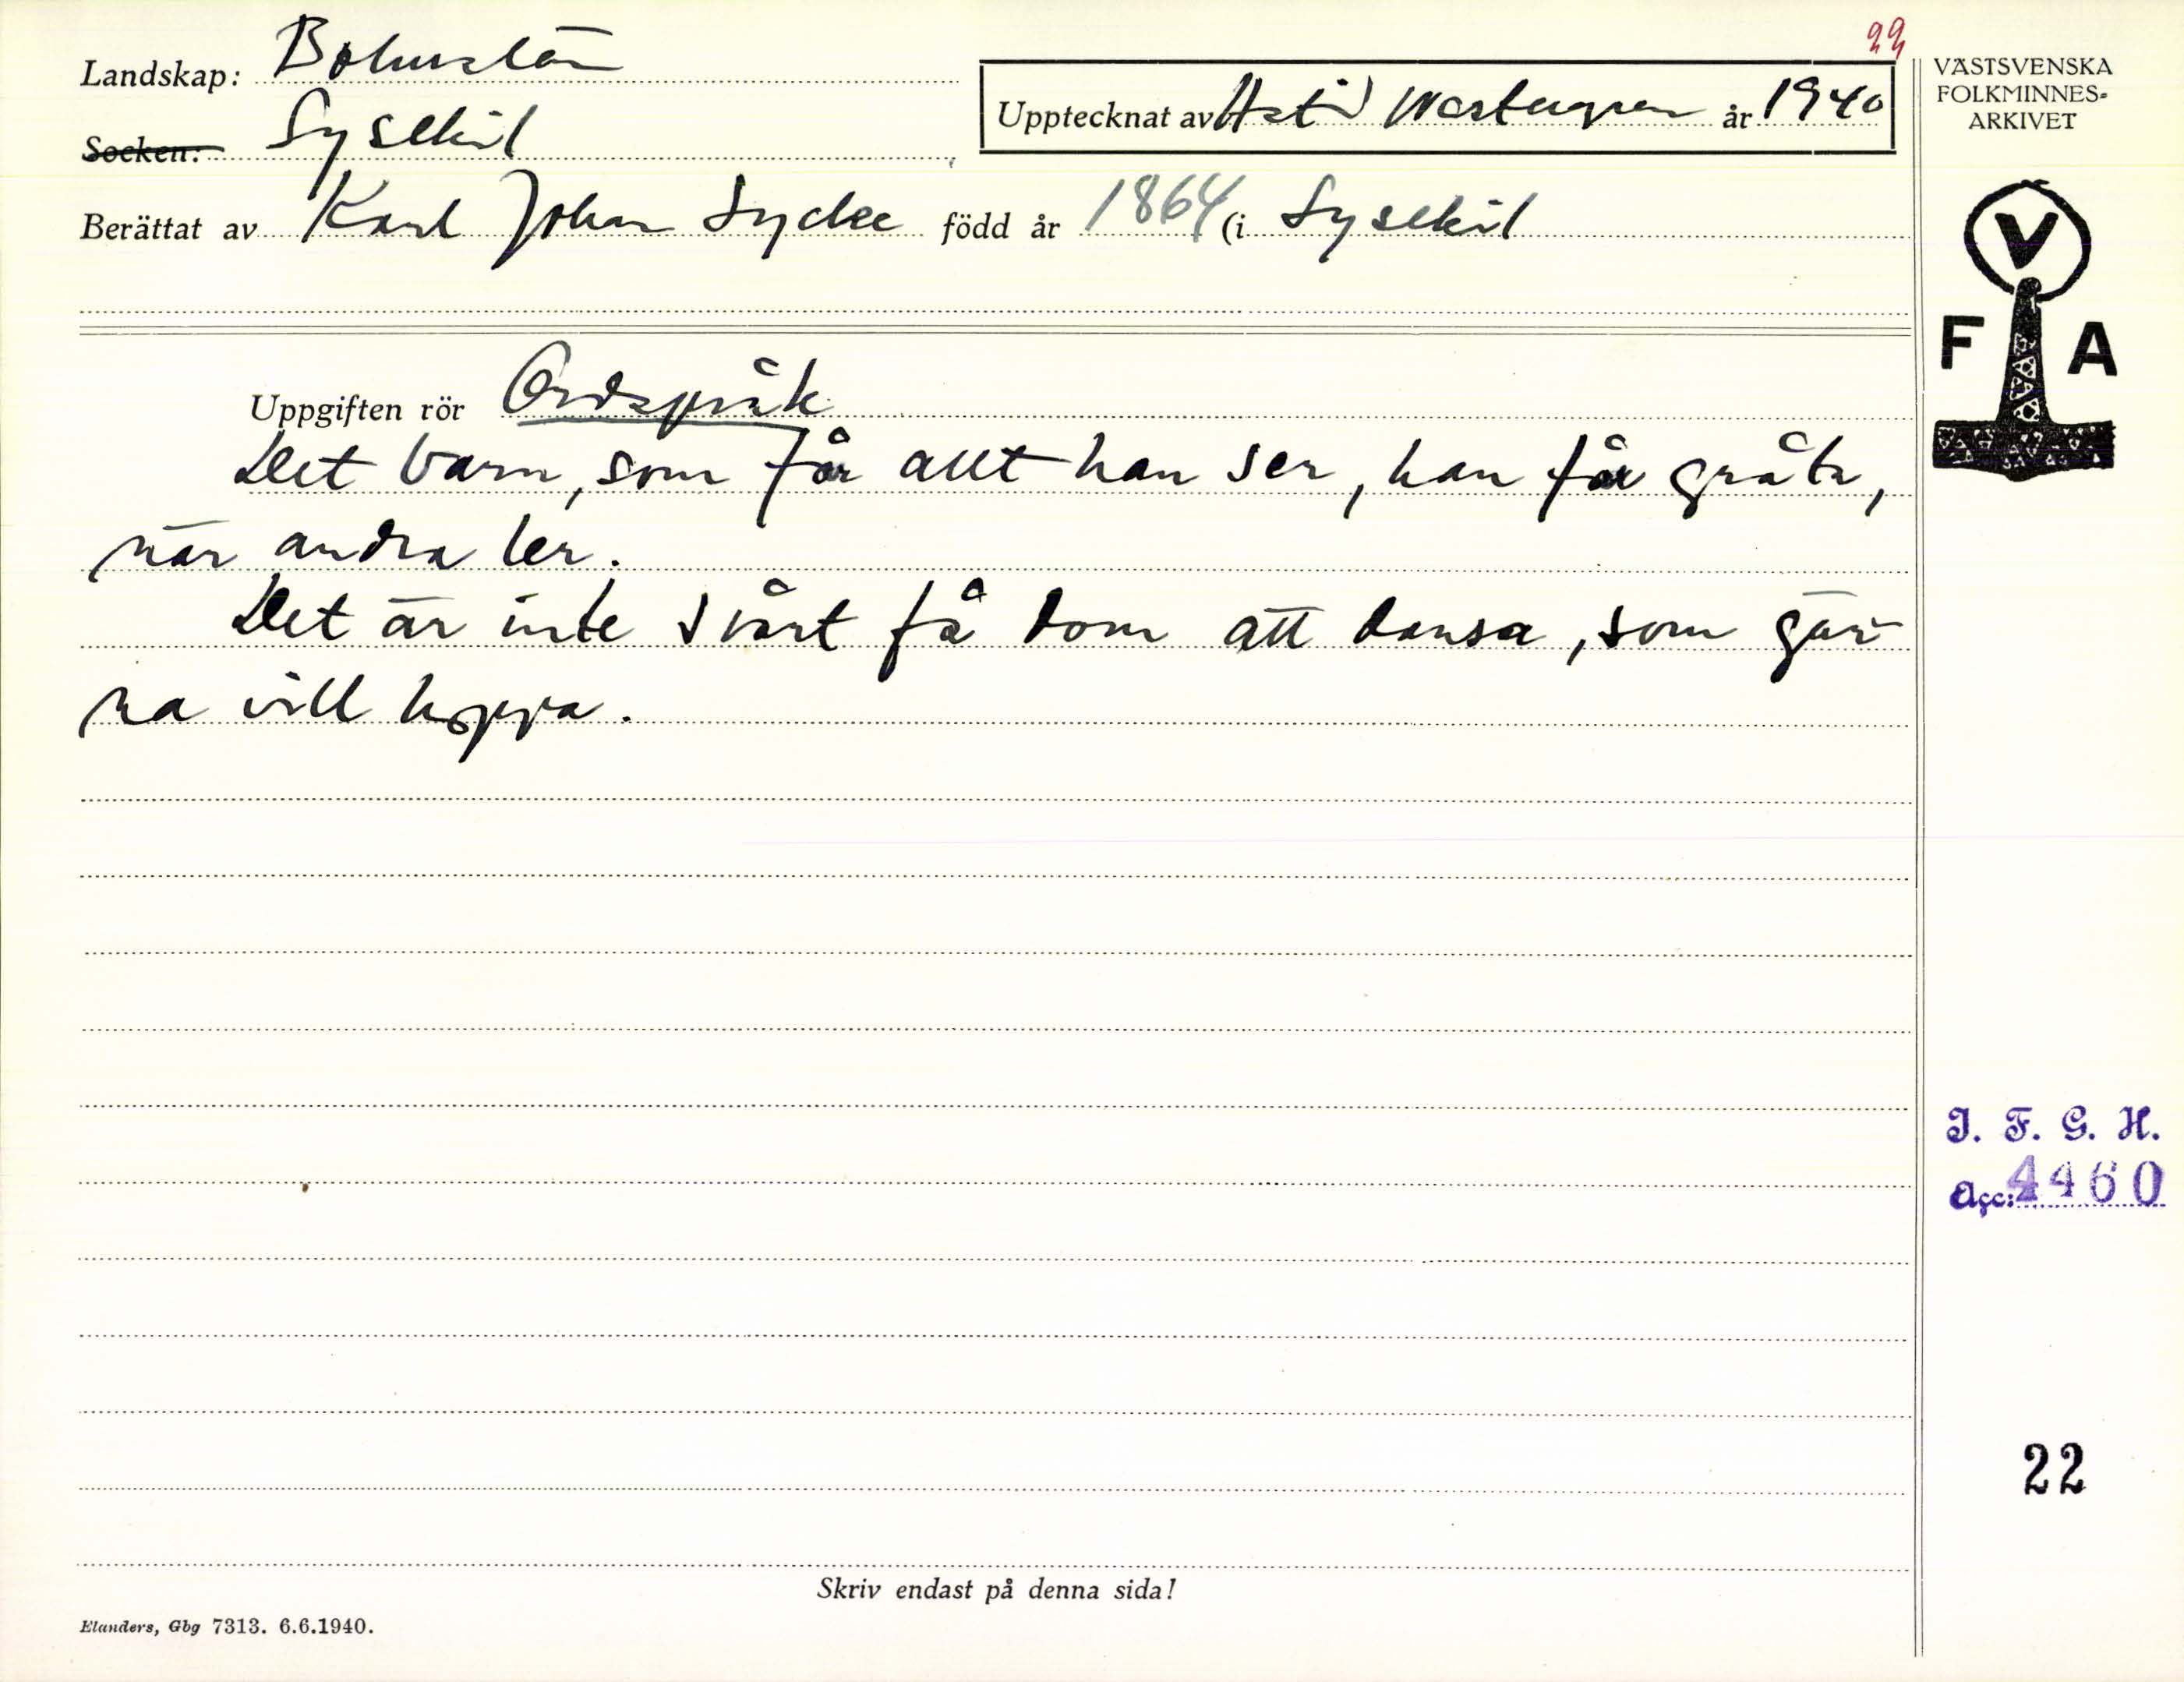 22
Landskap: Bohuslän
Upptecknat av Astrid Westergren år 1940
Socken: Lysekil
Berättat av Karl Johan Lycke född år 1864 (i Lysekil
Uppgiften rör Ordspråk
Det barn, som får allt han ser, han får gråta,
när andra ler.
Det är inte svårt få dom att dansa, som gär-
na vill hoppa.
Skriv endast på denna sida!
Elanders, Gbg 7313. 6.6.1940.
VÄSTSVENSKA
FOLKMINNES-
ARKIVET
V
F A
I. F. G. H.
Acc: 4460
22